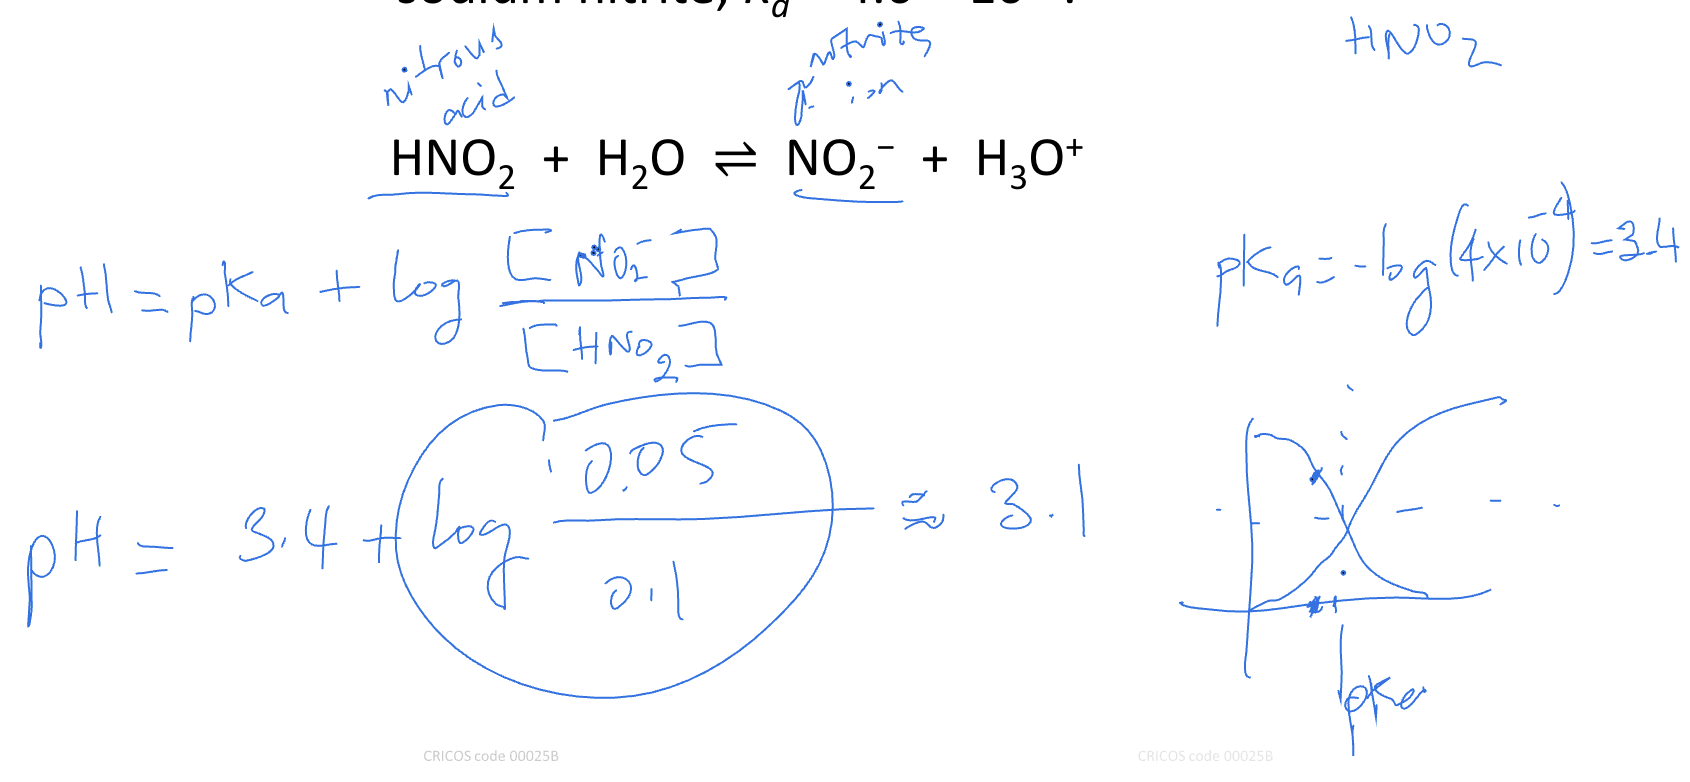 sodium nitrite, Ka
HNO2
nitrous
acid
nitrite
ion
HNO₂ + H₂O ⇌ NO₂⁻ + H₃O⁺
pH = pKa + log [NO₂⁻] / [HNO₂]
pKa = -log(4×10⁻⁴) = 3.4
pH = 3.4 + log 0.05 / 0.1 ≈ 3.1
pKa
CRICOS code 00025B
CRICOS code 00025B